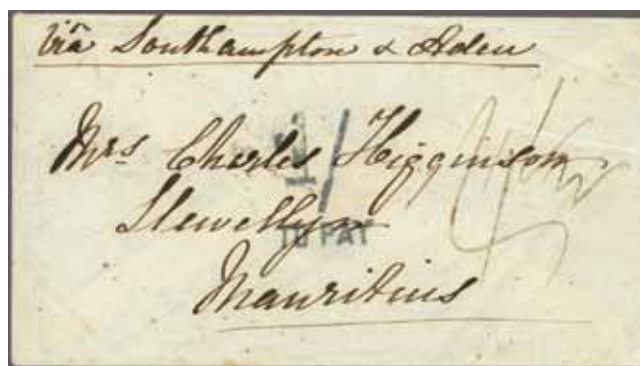 via Southampton & Aden
Mrs Charles Higginson
1/
Llewellyn
TO PAY
Mauritius